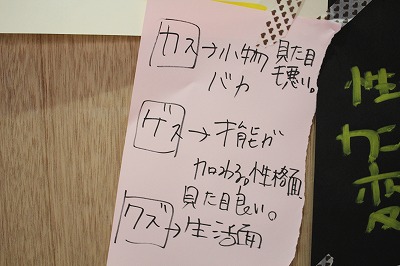 カス→小物 見た目
バカ 毛悪い。
ゲス→才能が
加わる。性格面
見た目良い。
クズ→生活面
性
変